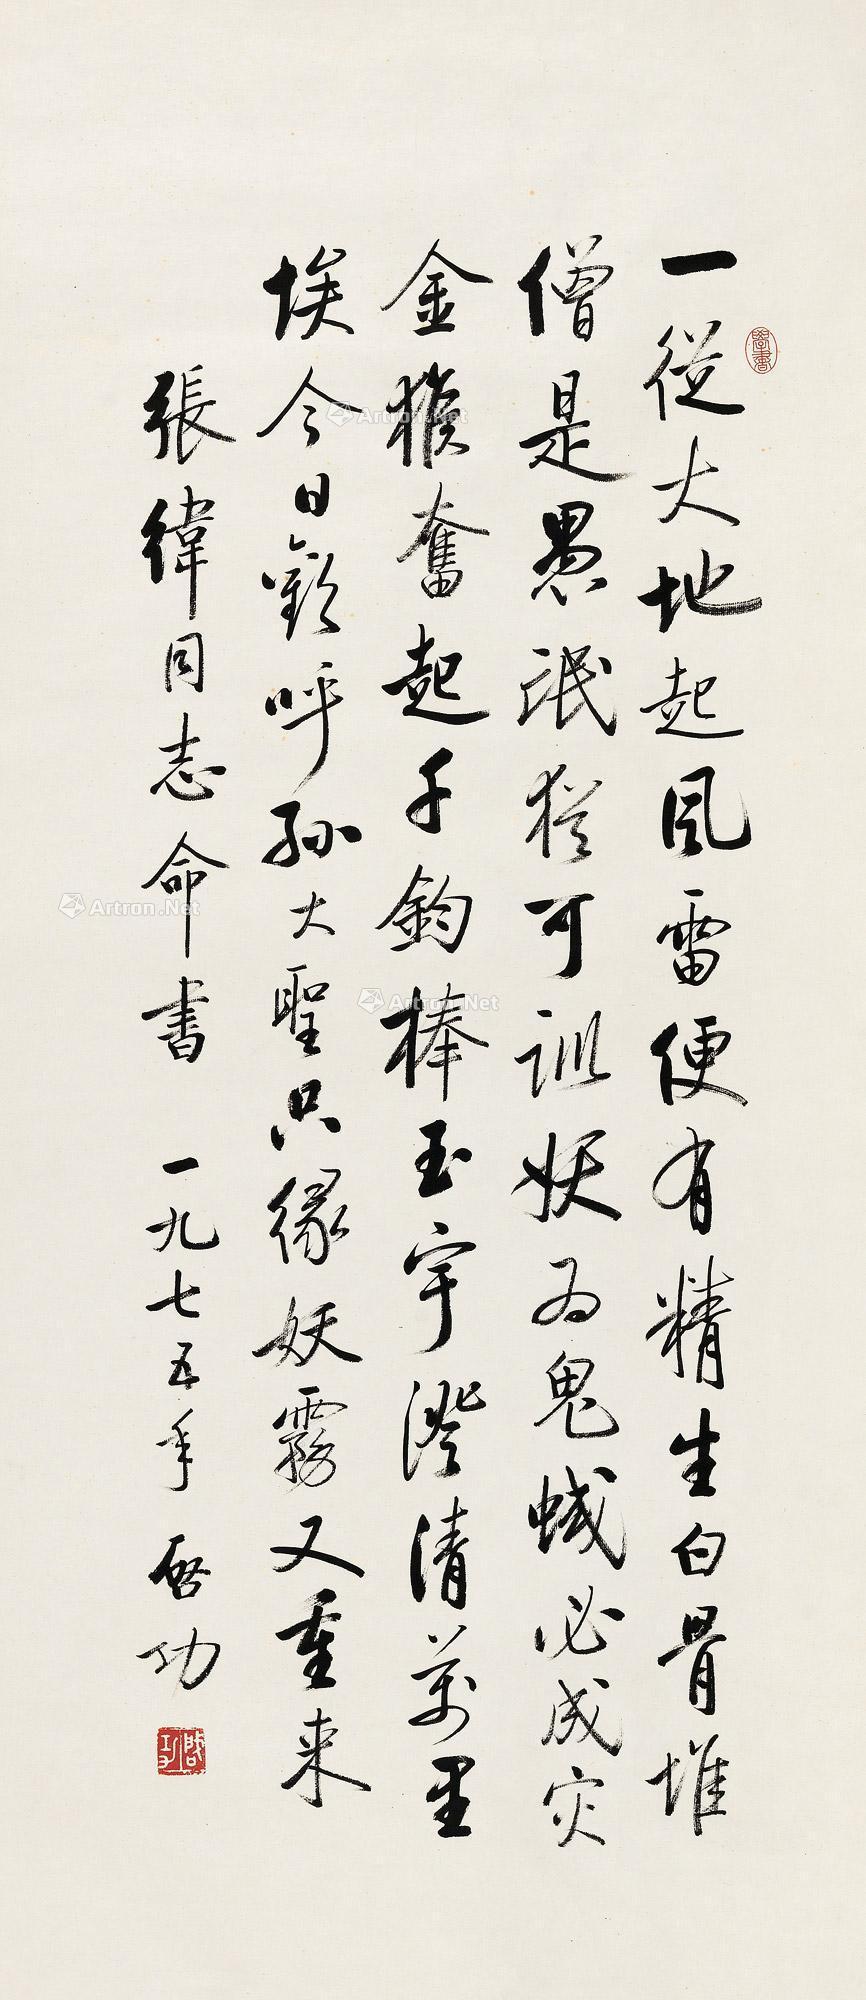 一從大地起風雷便有精生白骨堆
僧是愚氓猶可訓妖為鬼蜮必成灾
金猴奮起千鈞棒玉宇澄清萬里
埃今日歡呼孫大聖只緣妖霧又重来
張緯同志命書 一九七五年 啓功
學書
啓功
Artron.Net
Artron.Net
Artron.Net